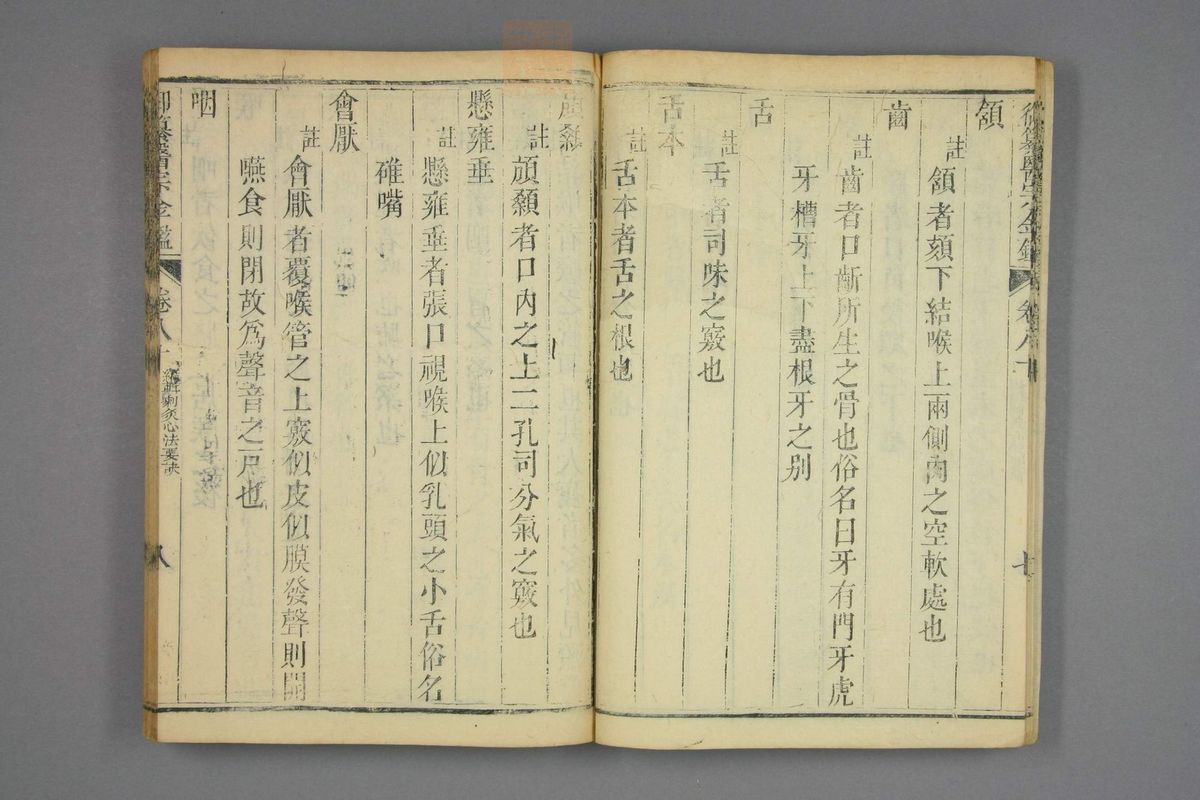 御纂醫宗金鑑 卷八十 七
頷
註 頷者頦下結喉上兩側肉之空軟處也
齒
註 齒者口齗所生之骨也俗名曰牙有門牙虎
牙槽牙上下盡根牙之别
舌
註 舌者司味之竅也
舌本
註 舌本者舌之根也
頏顙
註 頏顙者口內之上二孔司分氣之竅也
懸雍垂
註 懸雍垂者張口視喉上似乳頭之小舌俗名
碓嘴
會厭
註 會厭者覆喉管之上竅似皮似膜發聲則開
嚥食則閉故爲聲音之戶也
咽
御纂醫宗金鑑 卷八十 刺灸心法要訣 八